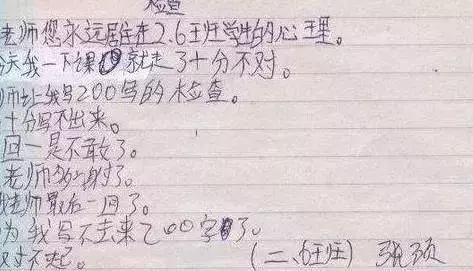 检查
老师您永远居住在2.6班学生的心理。
天我一下课就走了十分不对。
师让我写200写的检查。
十分写不出来。
回一是不敢了。
老师多谢了。
老师最后一回了。
为我写不去来200字了。
对不起。
(二、6班) 张